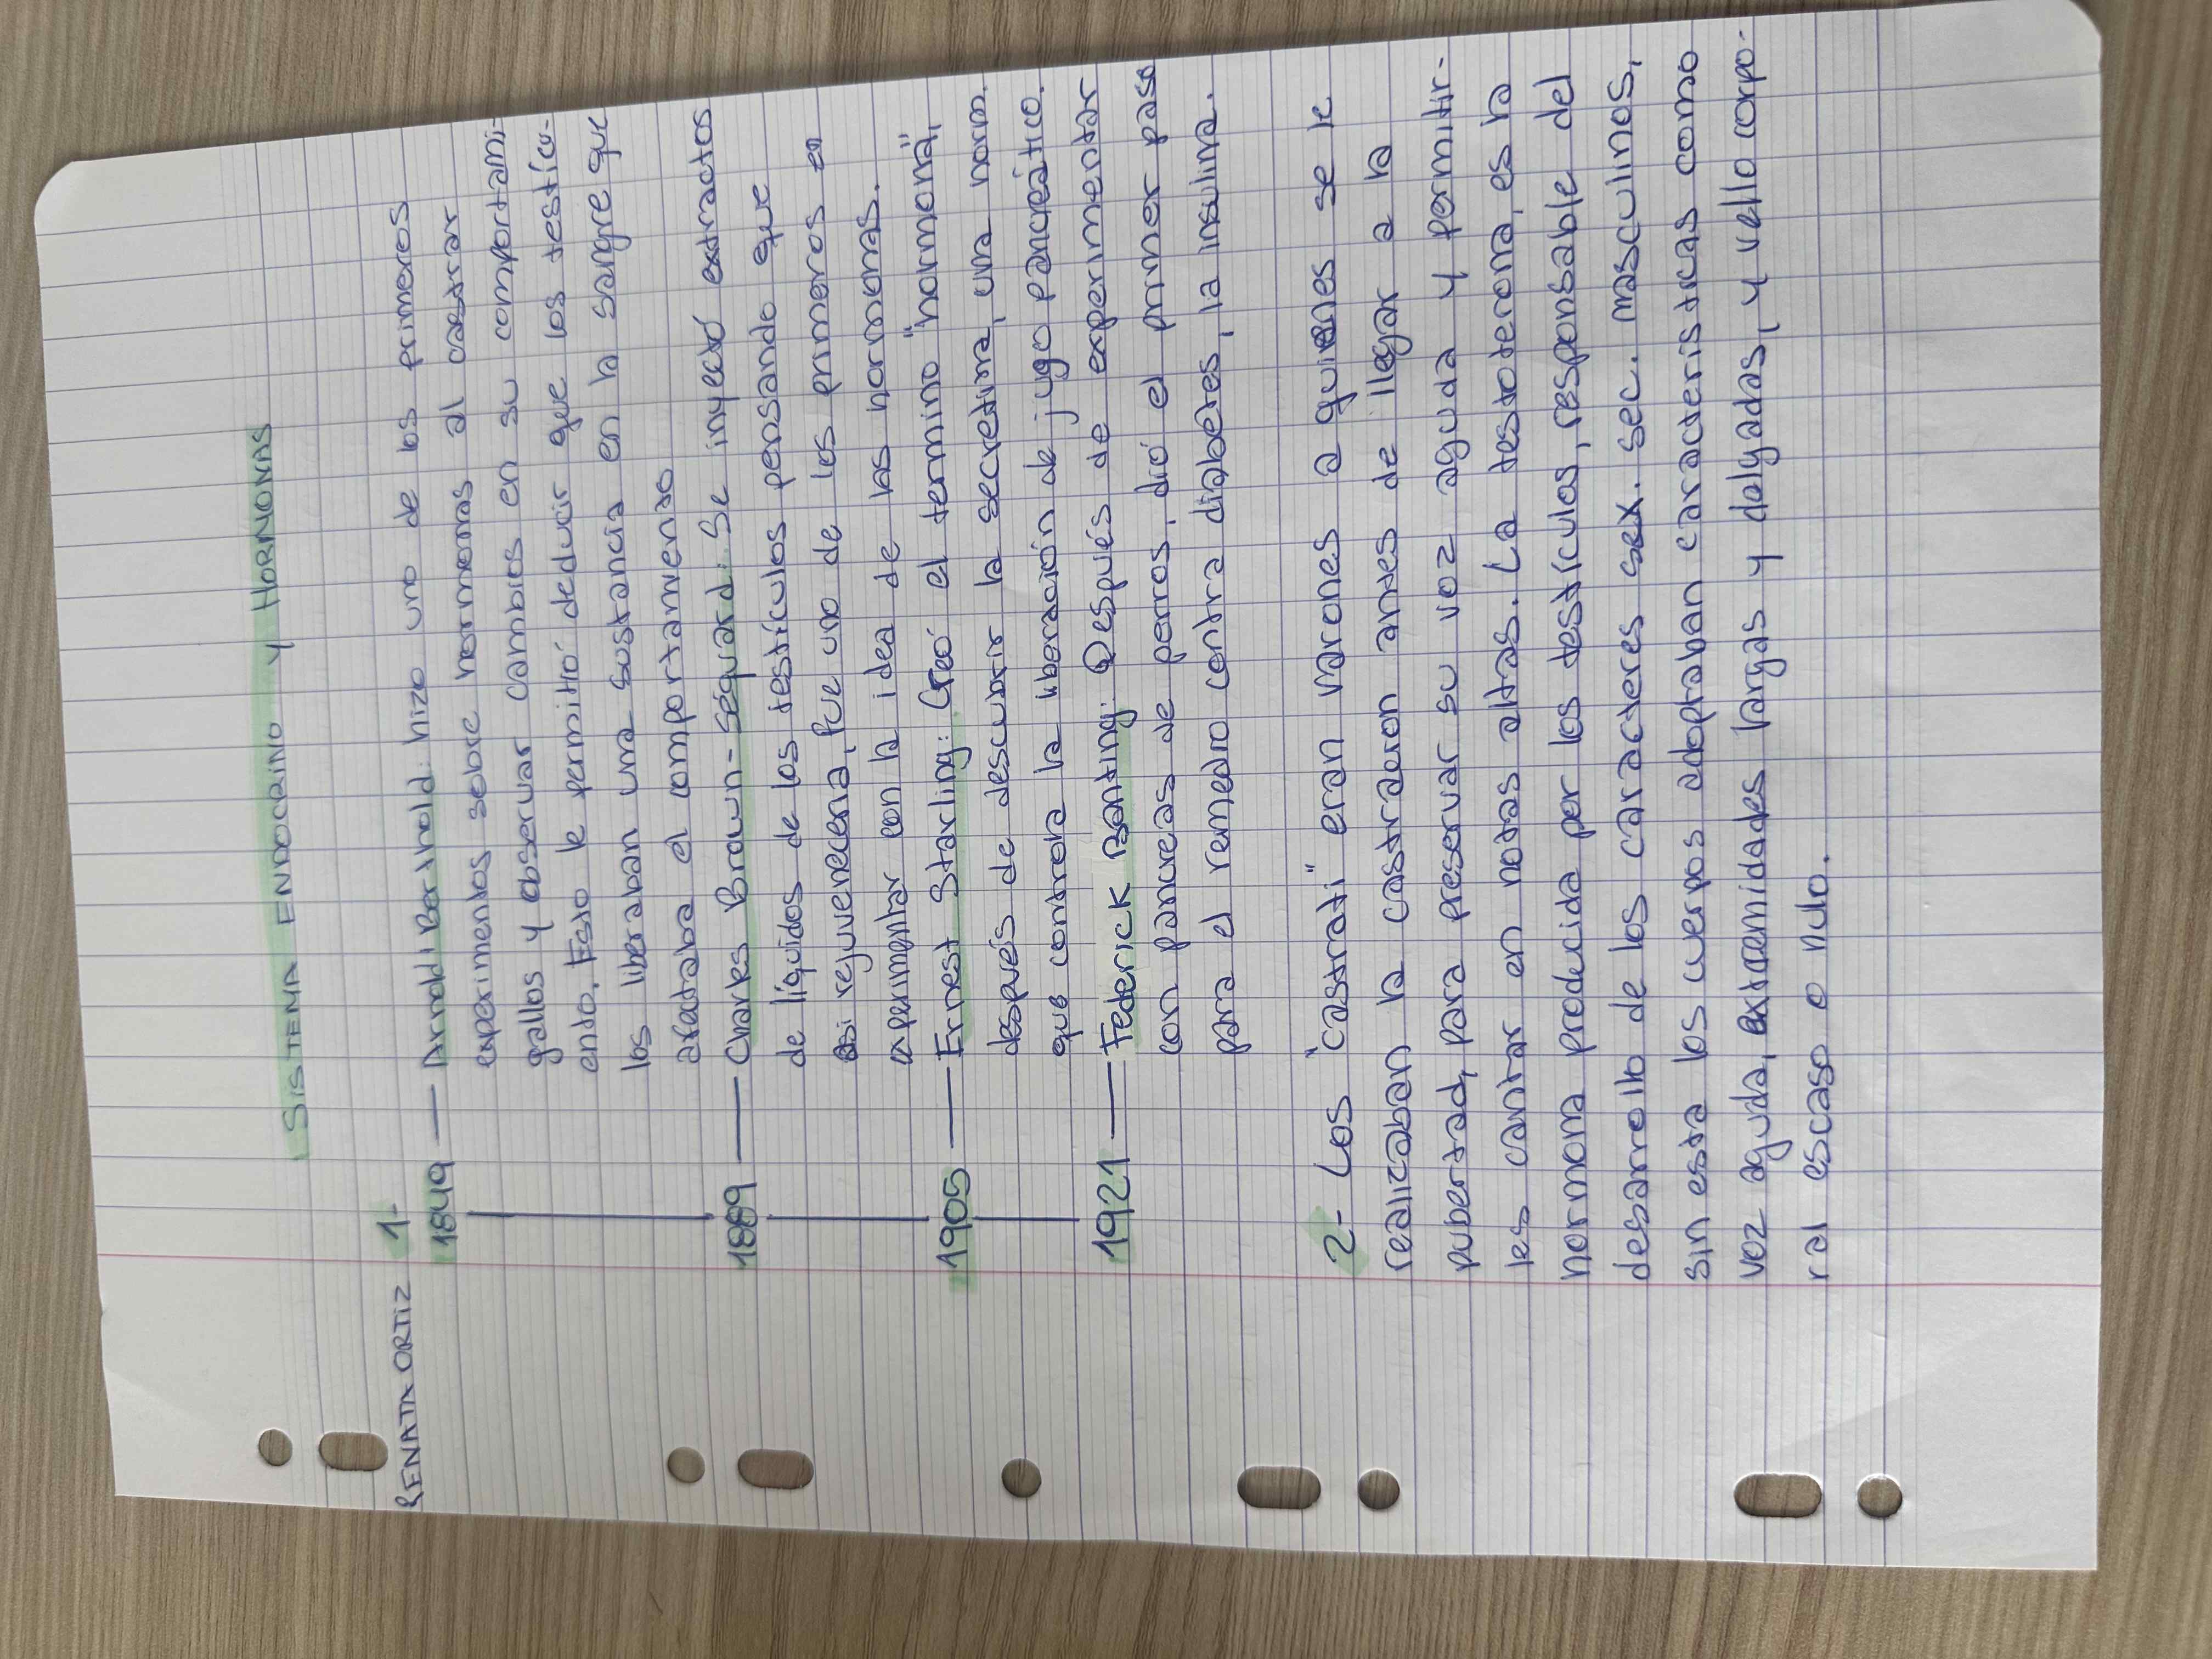 SISTEMA ENDOCRINO Y HORMONAS
RENATA ORTIZ 1-
1849 — Arnold Berthold: hizo uno de los primeros
experimentos sobre hormonas al castrar
gallos y observar cambios en su comportami-
ento. Esto le permitió deducir que los testícu-
los liberaban una sustancia en la sangre que
afectaba el comportamiento
1889 — Charles Brown-Séquard: Se inyectó extractos
de líquidos de los testículos pensando que
asi rejuvenecería, Fue uno de los primeros en
experimentar con la idea de las hormonas.
1905 — Ernest Starling: Creó el termino "hormona",
después de descubrir la secretina, una horm.
que controla la liberación de jugo pancreático.
1921 — Federick Banting: Después de experimentar
con pancreas de perros, dió el primer paso
para el remedio contra diabetes, la insulina.
2- Los "castrati" eran varones a quienes se le
realizaban la castracion antes de llegar a la
pubertad, para preservar su voz aguda y permitir-
les cantar en notas altas. La testoterona, es la
hormona producida por los testículos, responsable del
desarrollo de los caracteres sex. sec. masculinos,
sin esta los cuerpos adoptaban caracteristicas como
voz aguda, extremidades largas y delgadas, y vello corpo-
ral escaso o nulo.